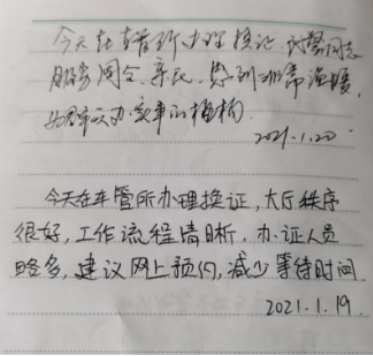 今天在车管所办理换证，民警同志
服务周全、亲民，感到非常温暖，
为群众办实事的楷模
2021.1.20
今天在车管所办理换证，大厅秩序
很好，工作流程清晰，办证人员
略多，建议网上预约，减少等待时间.
2021.1.19.